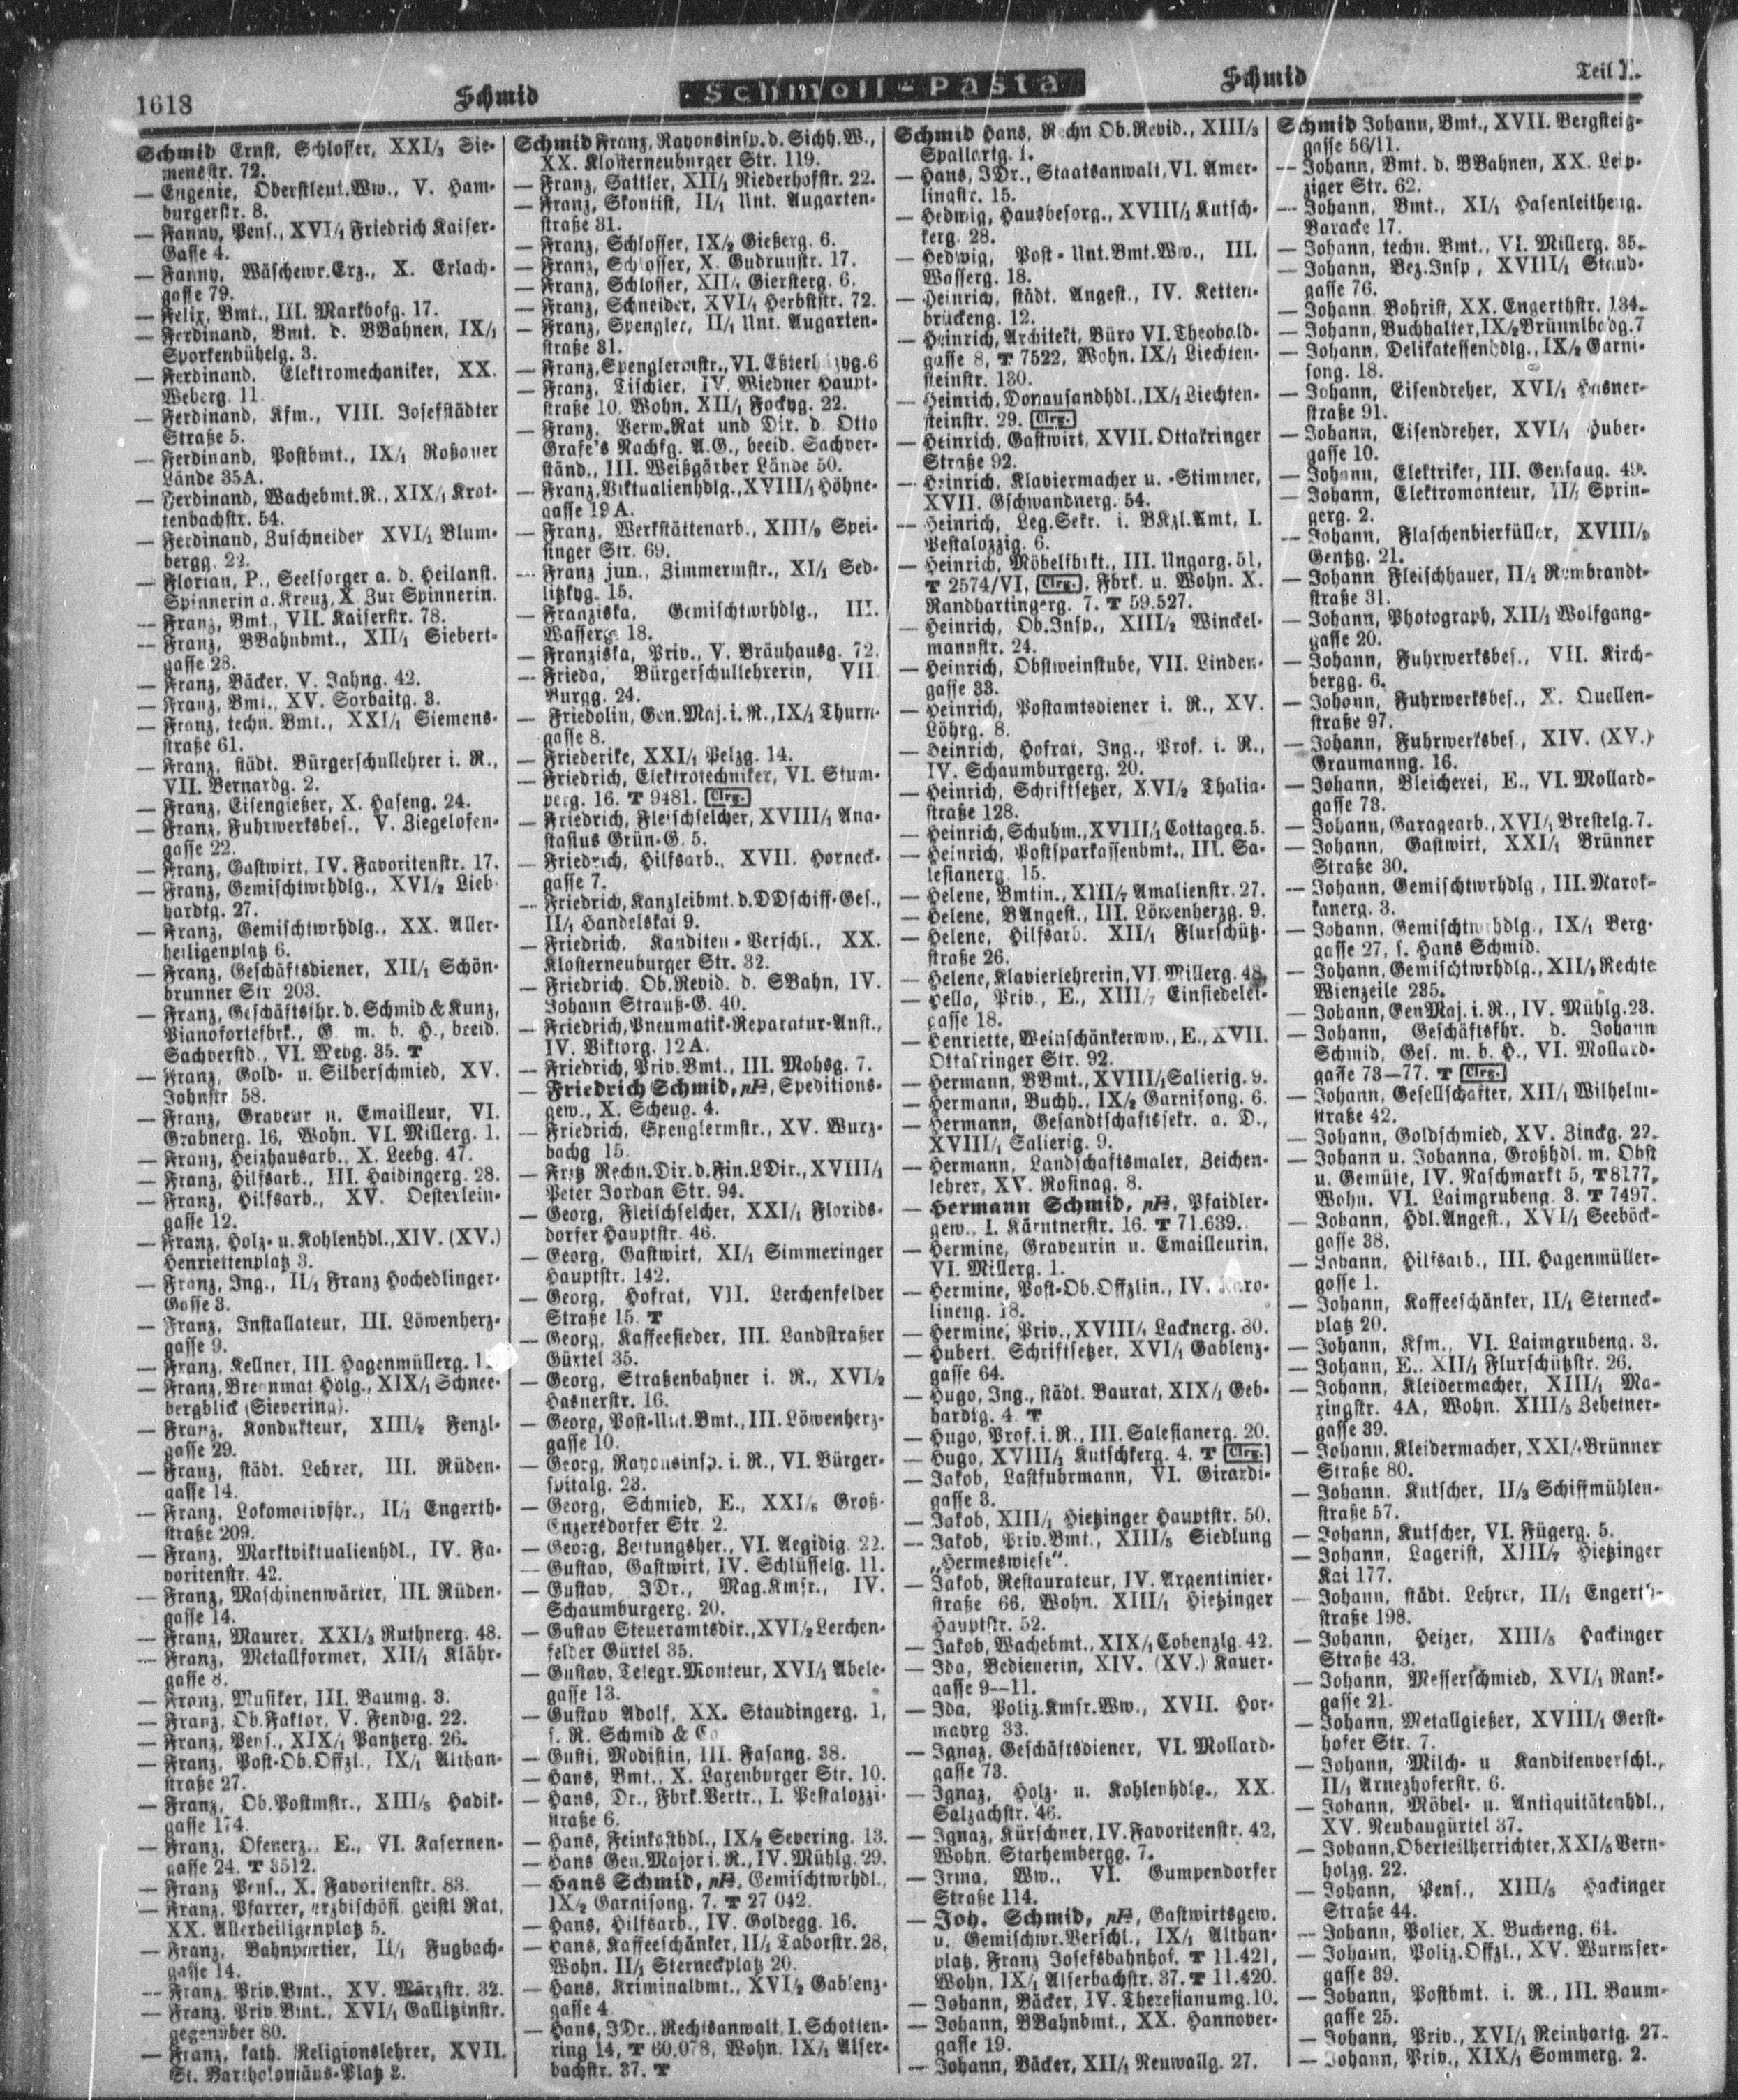 1618
Schmid
Schmoll-Pasta
Schmid
Teil I.
Schmid Ernst, Schlosser, XXI/3 Sie-
mensstr. 72.
— Eugenie, Oberstleut.Ww., V. Ham-
burgerstr. 8.
— Fanny, Pens., XVI/1 Friedrich Kaiser-
Gasse 4.
— Fanny, Wäschewr.Erz., X. Erlach-
gasse 79.
— Felix, Bmt., III. Markhofg. 17.
— Ferdinand, Bmt. d. BBahnen, IX/1
Sporkenbühelg. 3.
— Ferdinand, Elektromechaniker, XX.
Weberg. 11.
— Ferdinand, Kfm., VIII. Josefstädter
Straße 5.
— Ferdinand, Postbmt., IX/1 Roßauer
Lände 35A.
— Ferdinand, Wachebmt.R., XIX/1 Krot-
tenbachstr. 54.
— Ferdinand, Zuschneider XVI/1 Blum-
bergg. 22.
— Florian, P., Seelsorger a. d. Heilanst.
Spinnerin a. Kreuz, X. Zur Spinnerin.
— Franz, Bmt., VII. Kaiserstr. 78.
— Franz, BBahnbmt., XII/1 Siebert-
gasse 28.
— Franz, Bäcker, V. Jahng. 42.
— Franz, Bmt., XV. Sorbaitg. 3.
— Franz, techn. Bmt., XXI/1 Siemens-
straße 61.
— Franz, städt. Bürgerschullehrer i. R.,
VII. Bernardg. 2.
— Franz, Eisengießer, X. Haseng. 24.
— Franz, Fuhrwerksbes., V. Ziegelofen-
gasse 22.
— Franz, Gastwirt, IV. Favoritenstr. 17.
— Franz, Gemischtwrhdlg., XVI/2 Lieb-
hardtg. 27.
— Franz, Gemischtwrhdlg., XX. Aller-
heiligenplatz 6.
— Franz, Geschäftsdiener, XII/1 Schön-
brunner Str. 203.
— Franz, Geschäftsfhr. d. Schmid & Kunz,
Pianofortefbrk., G. m. b. H., beeid.
Sachverstd., VI. Webg. 35. T
— Franz, Gold- u. Silberschmied, XV.
Johnstr. 58.
— Franz, Graveur u. Emailleur, VI.
Grabnerg. 16, Wohn. VI. Millerg. 1.
— Franz, Heizhausarb., X. Leebg. 47.
— Franz, Hilfsarb., III. Haidingerg. 28.
— Franz, Hilfsarb., XV. Oesterlein-
gasse 12.
— Franz, Holz- u. Kohlenhdl., XIV. (XV.)
Henriettenplatz 3.
— Franz, Ing., II/1 Franz Hochedlinger-
Gasse 3.
— Franz, Installateur, III. Löwenherz-
gasse 9.
— Franz, Kellner, III. Hagenmüllerg.
— Franz, Brennmat.Hdlg., XIX/1 Schnee-
bergblick (Sievering).
— Franz, Kondukteur, XIII/2 Fenzl-
gasse 29.
— Franz, städt. Lehrer, III. Rüden-
gasse 14.
— Franz, Lokomotivfhr., II/1 Engerth-
straße 209.
— Franz, Marktviktualienhdl., IV. Fa-
voritenstr. 42.
— Franz, Maschinenwärter, III. Rüden-
gasse 14.
— Franz, Maurer, XXI/3 Ruthnerg. 48.
— Franz, Metallformer, XII/1 Klähr-
gasse 8.
— Franz, Musiker, III. Baumg. 3.
— Franz, Ob.Faktor, V. Fendig. 22.
— Franz, Pens., XIX/1 Pantzerg. 26.
— Franz, Post-Ob.Offzl., IX/1 Althan-
straße 27.
— Franz, Ob.Postmstr., XIII/5 Hadik-
gasse 174.
— Franz, Ofenerz., E., VI. Kasernen-
gasse 24. T 3512.
— Franz Pens., X. Favoritenstr. 83.
— Franz, Pfarrer, erzbischöfl. geistl Rat,
XX. Allerheiligenplatz 5.
— Franz, Bahnportier, II/1 Fugbach-
gasse 14.
— Franz, Priv.Bmt., XV. Märzstr. 32.
— Franz, Priv.Bmt., XVI/1 Gallitzinstr.
gegenüber 80.
— Franz, kath. Religionslehrer, XVII.
St. Bartholomäus-Platz 3.
Schmid Franz, Rayonsinsp. d. Sichh.W.,
XX. Klosterneuburger Str. 119.
— Franz, Sattler, XII/1 Niederhofstr. 22.
— Franz, Skontist, II/1 Unt. Augarten-
straße 31.
— Franz, Schlosser, IX/2 Gießerg. 6.
— Franz, Schlosser, X. Gudrunstr. 17.
— Franz, Schlosser, XII/1 Giersterg. 6.
— Franz, Schneider, XVI/1 Herbststr. 72.
— Franz, Spengler, II/1 Unt. Augarten-
straße 31.
— Franz, Spenglermstr., VI. Eßterházyg. 6
— Franz, Tischler, IV. Wiedner Haupt-
straße 10, Wohn. XII/1 Fockyg. 22.
— Franz, Verw.Rat und Dir. d. Otto
Grafe's Nachfg. A.G., beeid. Sachver-
ständ., III. Weißgärber Lände 50.
— Franz, Viktualienhdlg., XVIII/1 Höhne-
gasse 19A.
— Franz, Werkstättenarb., XIII/9 Spei-
singer Str. 69.
— Franz jun., Zimmermstr., XI/1 Sed-
litzkyg. 15.
— Franziska, Gemischtwrhdlg., III.
Wasserg. 18.
— Franziska, Priv., V. Bräuhausg. 72.
— Frieda, Bürgerschullehrerin, VII.
Burgg. 24.
— Friedolin, Gen.Maj. i. R., IX/1 Thurn-
gasse 8.
— Friederike, XXI/1 Pelzg. 14.
— Friedrich, Elektrotechniker, VI. Stum-
perg. 16. T 9481. Clrg.
— Friedrich, Fleischselcher, XVIII/1 Ana-
stasius Grün-G. 5.
— Friedrich, Hilfsarb., XVII. Horneck-
gasse 7.
— Friedrich, Kanzleibmt. d. DDschiff-Ges.,
II/1 Handelskai 9.
— Friedrich, Kanditen-Verschl., XX.
Klosterneuburger Str. 32.
— Friedrich, Ob.Revid. d. SBahn, IV.
Johann Strauß-G. 40.
— Friedrich, Pneumatik-Reparatur-Anst.,
IV. Viktorg. 12A.
— Friedrich, Priv.Bmt., III. Mohsg. 7.
— Friedrich Schmid, Speditions-
gew., X. Scheug. 4.
— Friedrich, Spenglermstr., XV. Wurz-
bachg 15.
— Fritz Rechn.Dir. d. Fin.LDir., XVIII/1
Peter Jordan Str. 94.
— Georg, Fleischselcher, XXI/1 Florids-
dorfer Hauptstr. 46.
— Georg, Gastwirt, XI/1 Simmeringer
Hauptstr. 142.
— Georg, Hofrat, VII. Lerchenfelder
Straße 15. T
— Georg, Kaffeesieder, III. Landstraßer
Gürtel 35.
— Georg, Straßenbahner i. R., XVI/2
Hasnerstr. 16.
— Georg, Post-Unt.Bmt., III. Löwenherz-
gasse 10.
— Georg, Rayonsinsp. i. R., VI. Bürger-
spitalg. 23.
— Georg, Schmied, E., XXI/5 Groß-
Enzersdorfer Str. 2.
— Georg, Zeitungsher., VI. Aegidig. 22.
— Gustav, Gastwirt, IV. Schlüsselg. 11.
— Gustav, JDr., Mag.Kmsr., IV.
Schaumburgerg. 20.
— Gustav Steueramtsdir., XVI/2 Lerchen-
felder Gürtel 35.
— Gustav, Telegr.Monteur, XVI/1 Abele-
gasse 13.
— Gustav Adolf, XX. Staudingerg. 1,
s. R. Schmid & Co
— Gusti, Modistin, III. Fasang. 38.
— Hans, Bmt., X. Laxenburger Str. 10.
— Hans, Dr., Fbrk.Vertr., I. Pestalozzi-
straße 6.
— Hans, Feinkosthdl., IX/2 Severing. 13.
— Hans Gen.Major i. R., IV. Mühlg. 29.
— Hans Schmid, Gemischtwrhdl.,
IX/2 Garnisong. 7. T 27 042.
— Hans, Hilfsarb., IV. Goldegg. 16.
— Hans, Kaffeeschänker, II/1 Taborstr. 28,
Wohn. II/1 Sterneckplatz 20.
— Hans, Kriminalbmt., XVI/2 Gablenz-
gasse 4.
— Hans, JDr., Rechtsanwalt, I. Schotten-
ring 14, T 60.078, Wohn. IX/1 Alser-
bachstr. 37. T
Schmid Hans, Rechn Ob.Revid., XIII/3
Spallartg. 1.
— Hans, JDr., Staatsanwalt, VI. Amer-
lingstr. 15.
— Hedwig, Hausbesorg., XVIII/1 Kutsch-
kerg. 28.
— Hedwig, Post-Unt.Bmt.Ww., III.
Wasserg. 18.
— Heinrich, städt. Angest., IV. Ketten-
brückeng. 12.
— Heinrich, Architekt, Büro VI. Theobald-
gasse 8, T 7522, Wohn. IX/1 Liechten-
steinstr. 130.
— Heinrich, Donausandhdl., IX/1 Liechten-
steinstr. 29. Clrg.
— Heinrich, Gastwirt, XVII. Ottakringer
Straße 92.
— Heinrich, Klaviermacher u. -Stimmer,
XVII. Gschwandnerg. 54.
— Heinrich, Leg.Sekr. i. BKzl.Amt, I.
Pestalozzig. 6.
— Heinrich, Möbelfbrkt., III. Ungarg. 51,
T 2574/VI, Clrg., Fbrk. u. Wohn. X.
Randhartingerg. 7. T 59.527.
— Heinrich, Ob.Insp., XIII/2 Winckel-
mannstr. 24.
— Heinrich, Obstweinstube, VII. Linden-
gasse 33.
— Heinrich, Postamtsdiener i. R., XV.
Löhrg. 8.
— Heinrich, Hofrat, Ing., Prof. i. R.,
IV. Schaumburgerg. 20.
— Heinrich, Schriftsetzer, XVI/2 Thalia-
straße 128.
— Heinrich, Schuhm., XVIII/1 Cottageg. 5.
— Heinrich, Postsparkassenbmt., III. Sa-
lesianerg. 15.
— Helene, Bmtin., XIII/7 Amalienstr. 27.
— Helene, BAngest., III. Löwenherzg. 9.
— Helene, Hilfsarb. XII/1 Flurschütz-
straße 26.
— Helene, Klavierlehrerin, VI. Millerg. 48.
— Hella, Priv., E., XIII/7 Einsiedelei-
gasse 18.
— Henriette, Weinschänkerww., E., XVII.
Ottakringer Str. 92.
— Hermann, BBmt., XVIII/1 Salierig. 9.
— Hermann, Buchh., IX/2 Garnisong. 6.
— Hermann, Gesandtschaftssekr. a. D.,
XVIII/1 Salierig. 9.
— Hermann, Landschaftsmaler, Zeichen-
lehrer, XV. Rosinag. 8.
— Hermann Schmid, Pfaidler-
gew., I. Kärntnerstr. 16. T 71.639.
— Hermine, Graveurin u. Emailleurin,
VI. Millerg. 1.
— Hermine, Post-Ob.Offzlin., IV. Karo-
lineng. 18.
— Hermine, Priv., XVIII/1 Lacknerg. 80.
— Hubert, Schriftsetzer, XVI/1 Gablenz-
gasse 64.
— Hugo, Ing., städt. Baurat, XIX/1 Geb-
hardtg. 4. T
— Hugo, Prof. i. R., III. Salesianerg. 20.
— Hugo, XVIII/1 Kutschkerg. 4. T Clrg.
— Jakob, Lastfuhrmann, VI. Girardi-
gasse 3.
— Jakob, XIII/1 Hietzinger Hauptstr. 50.
— Jakob, Priv.Bmt., XIII/5 Siedlung
„Hermeswiese“.
— Jakob, Restaurateur, IV. Argentinier-
straße 66, Wohn. XIII/1 Hietzinger
Hauptstr. 52.
— Jakob, Wachebmt., XIX/1 Cobenzlg. 42.
— Ida, Bedienerin, XIV. (XV.) Kauer-
gasse 9—11.
— Ida, Poliz.Kmsr.Ww., XVII. Hor-
mayrg 33.
— Ignaz, Geschäftsdiener, VI. Mollard-
gasse 73.
— Ignaz, Holz- u. Kohlenhdlg., XX.
Salzachstr. 46.
— Ignaz, Kürschner, IV. Favoritenstr. 42,
Wohn. Starhembergg. 7.
— Irma, Ww., VI. Gumpendorfer
Straße 114.
— Joh. Schmid, Gastwirtsgew.
u. Gemischwr.Verschl., IX/1 Althan-
platz, Franz Josefsbahnhof. T 11.421,
Wohn. IX/1 Alserbachstr. 37. T 11.420.
— Johann, Bäcker, IV. Theresianumg. 10.
— Johann, BBahnbmt., XX. Hannover-
gasse 19.
— Johann, Bäcker, XII/1 Neuwallg. 27.
Schmid Johann, Bmt., XVII. Bergsteig-
gasse 56/11.
— Johann, Bmt. d. BBahnen, XX. Leip-
ziger Str. 62.
— Johann, Bmt., XI/1 Hasenleitheng.
Baracke 17.
— Johann, techn. Bmt., VI. Millerg. 35.
— Johann, Bez.Insp., XVIII/1 Staud-
gasse 76.
— Johann, Bohrist, XX. Engerthstr. 134.
— Johann, Buchhalter, IX/2 Brünnlbadg. 7
— Johann, Delikatessenhdlg., IX/2 Garni-
song. 18.
— Johann, Eisendreher, XVI/1 Hasner-
straße 91.
— Johann, Eisendreher, XVI/1 Huber-
gasse 10.
— Johann, Elektriker, III. Gensaug. 49.
— Johann, Elektromonteur, II/1 Sprin-
gerg. 2.
— Johann, Flaschenbierfüller, XVIII/1
Gentzg. 21.
— Johann Fleischhauer, II/1 Rembrandt-
straße 31.
— Johann, Photograph, XII/1 Wolfgang-
gasse 20.
— Johann, Fuhrwerksbes., VII. Kirch-
bergg. 6.
— Johann, Fuhrwerksbes., X. Quellen-
straße 97.
— Johann, Fuhrwerksbes., XIV. (XV.)
Graumanng. 16.
— Johann, Bleicherei, E., VI. Mollard-
gasse 73.
— Johann, Garagearb., XVI/1 Brestelg. 7.
— Johann, Gastwirt, XXI/1 Brünner
Straße 30.
— Johann, Gemischtwrhdlg., III. Marok-
kanerg. 3.
— Johann, Gemischtwrhdlg., IX/1 Berg-
gasse 27, s. Hans Schmid.
— Johann, Gemischtwrhdlg., XII/2 Rechte
Wienzeile 235.
— Johann, GenMaj. i. R., IV. Mühlg. 23.
— Johann, Geschäftsfhr. d. Johann
Schmid, Ges. m. b. H., VI. Mollard-
gasse 73—77. T Clrg.
— Johann, Gesellschafter, XII/1 Wilhelm-
straße 42.
— Johann, Goldschmied, XV. Zinckg. 22.
— Johann u. Johanna, Großhdl. m. Obst
u. Gemüse, IV. Naschmarkt 5, T 8177,
Wohn. VI. Laimgrubeng. 3. T 7497.
— Johann, Hdl.Angest., XVI/1 Seeböck-
gasse 38.
— Johann, Hilfsarb., III. Hagenmüller-
gasse 1.
— Johann, Kaffeeschänker, II/1 Sterneck-
platz 20.
— Johann, Kfm., VI. Laimgrubeng. 3.
— Johann, E., XII/1 Flurschützstr. 26.
— Johann, Kleidermacher, XIII/1 Ma-
xingstr. 4A, Wohn. XIII/5 Zehetner-
gasse 39.
— Johann, Kleidermacher, XXI/1 Brünner
Straße 80.
— Johann, Kutscher, II/3 Schiffmühlen-
straße 57.
— Johann, Kutscher, VI. Fügerg. 5.
— Johann, Lagerist, XIII/7 Hietzinger
Kai 177.
— Johann, städt. Lehrer, II/1 Engerth-
straße 198.
— Johann, Heizer, XIII/5 Hackinger
Straße 43.
— Johann, Messerschmied, XVI/1 Rank-
gasse 21.
— Johann, Metallgießer, XVIII/1 Gerst-
hofer Str. 7.
— Johann, Milch- u Kanditenverschl.,
II/1 Arnezhoferstr. 6.
— Johann, Möbel- u. Antiquitätenhdl.,
XV. Neubaugürtel 37.
— Johann, Oberteilherrichter, XXI/5 Bern-
holzg. 22.
— Johann, Pens., XIII/5 Hackinger
Straße 44.
— Johann, Polier, X. Bucheng. 64.
— Johann, Poliz.Offzl., XV. Wurmser-
gasse 39.
— Johann, Postbmt. i. R., III. Baum-
gasse 25.
— Johann, Priv., XVI/1 Reinhartg. 27.
— Johann, Priv., XIX/1 Sommerg. 2.